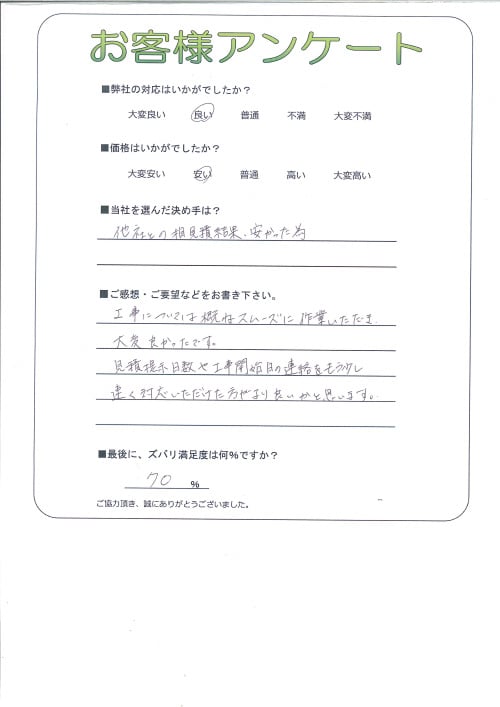 お客様アンケート
■弊社の対応はいかがでしたか？
大変良い 良い 普通 不満 大変不満
■価格はいかがでしたか？
大変安い 安い 普通 高い 大変高い
■当社を選んだ決め手は？
他社との相見積結果、安かった為
■ご感想・ご要望などをお書き下さい。
工事については概ねスムーズに作業いただき
大変良かったです。
見積提示日数や工事開始日の連絡をもう少し
速く対応いただけた方がより良いかと思います。
■最後に、ズバリ満足度は何%ですか？
70 %
ご協力頂き、誠にありがとうございました。